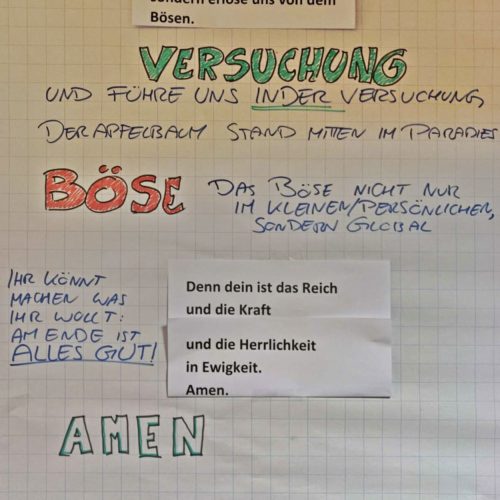 sondern erlöse uns von dem
Bösen.
VERSUCHUNG
UND FÜHRE UNS IN DER VERSUCHUNG,
DER APFELBAUM STAND MITTEN IM PARADIES
BÖSE
DAS BÖSE NICHT NUR
IM KLEINEN/PERSÖNLICHEN,
SONDERN GLOBAL
IHR KÖNNT
MACHEN WAS
IHR WOLLT:
AM ENDE IST
ALLES GUT!
Denn dein ist das Reich
und die Kraft
und die Herrlichkeit
in Ewigkeit.
Amen.
AMEN